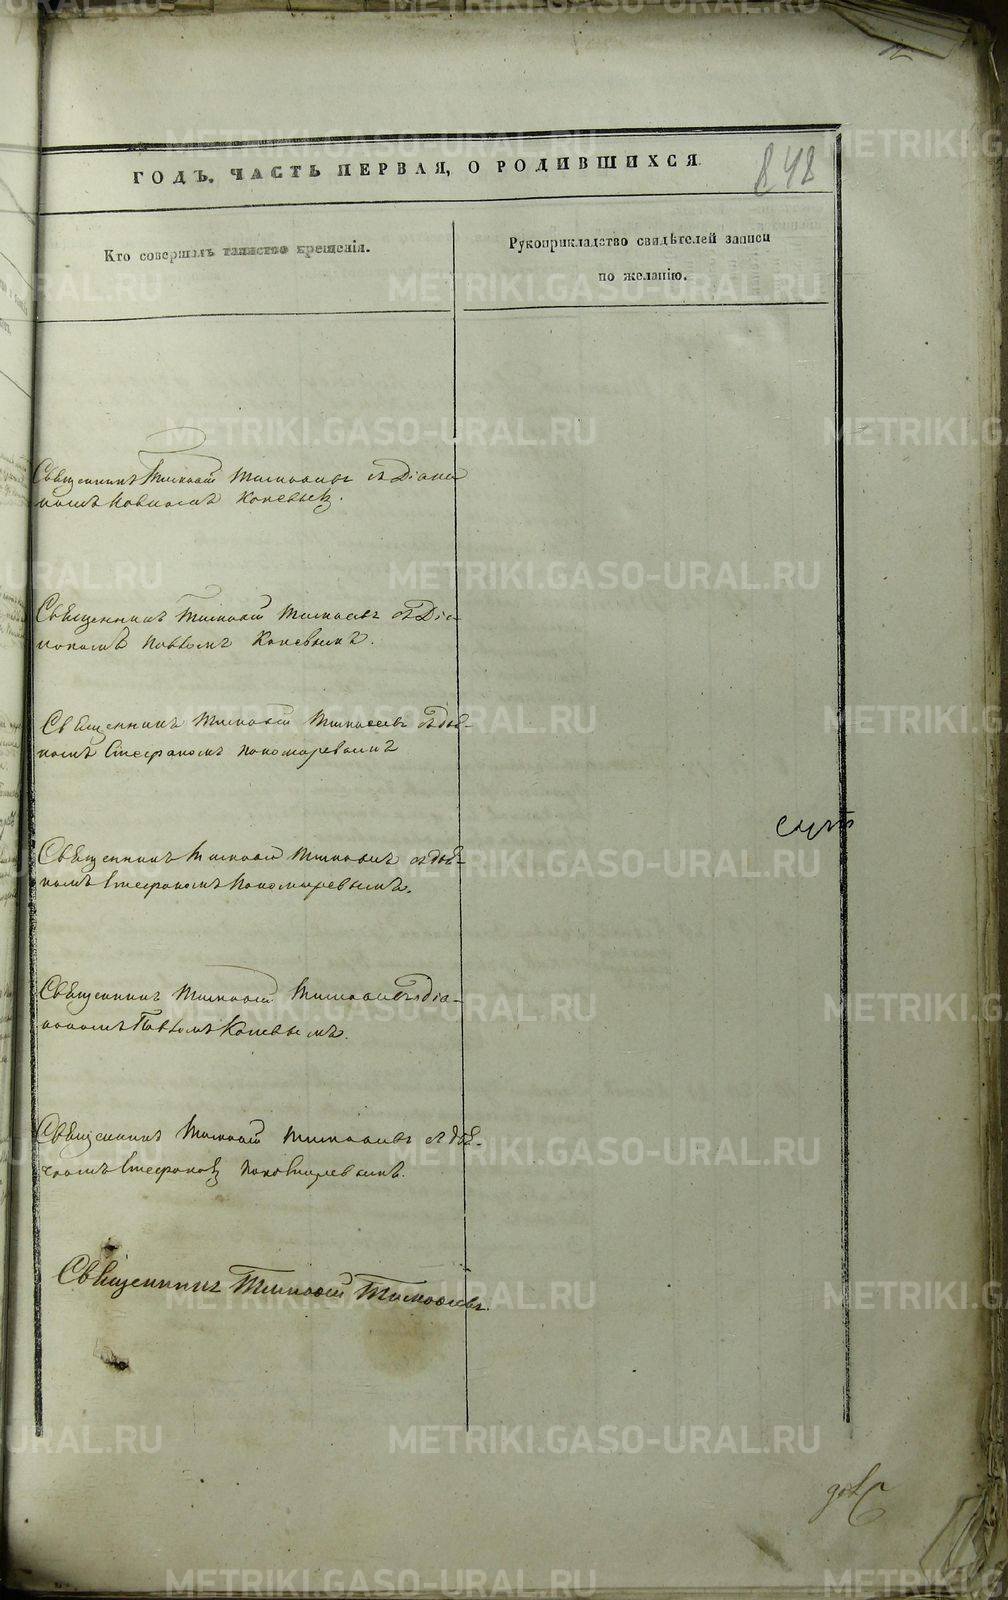 ГОДЪ. ЧАСТЬ ПЕРВАЯ, О РОДИВШИХСЯ.
848
Кто совершалъ таинство крещенія.
Рукоприкладство свидѣтелей записи
по желанію.
Священникъ Тимоѳей Тимоѳеевъ съ Діако
номъ Павломъ Коневымъ.
Священникъ Тимоѳей Тимоѳеевъ съ Діа-
кономъ Павломъ Коневымъ.
Священникъ Тимоѳей Тимоѳеевъ съ дьяч-
комъ Стефаномъ Пономаревымъ
Священникъ Тимоѳей Тимоѳеевъ съ дьяч-
комъ Стефаномъ Пономаревымъ.
Священникъ Тимоѳей Тимоѳеевъ съ діа-
кономъ Павломъ Коневымъ.
Священникъ Тимоѳей Тимоѳеевъ съ дьяч-
комъ Стефаномъ Пономаревымъ.
Священникъ Тимоѳей Тимоѳеевъ.
METRIKI.GASO-URAL.RU